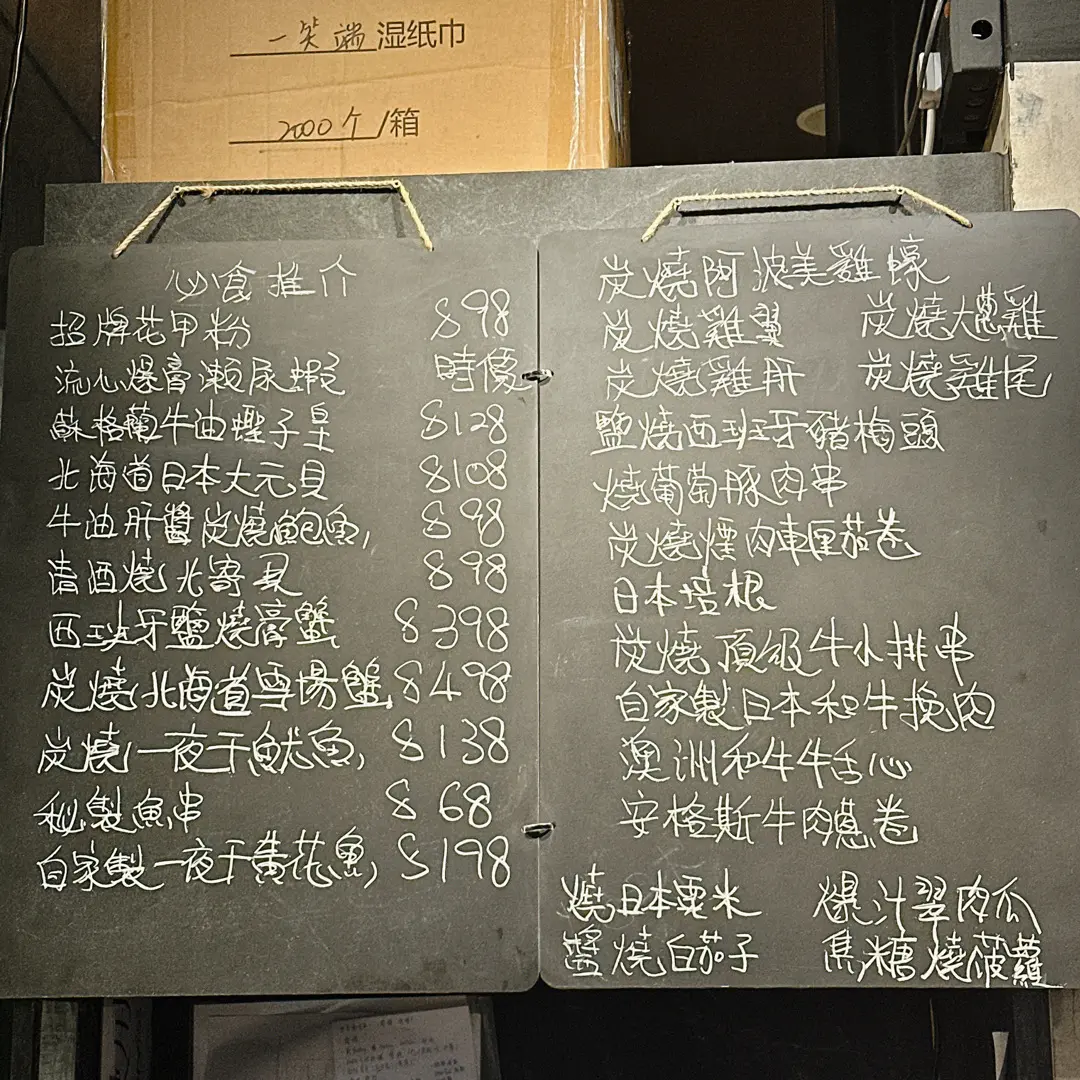 一笑端 湿纸巾
2000个/箱
必食推介
招牌花甲粉 $98
流心爆膏瀨尿蝦 時價
蘇格蘭牛油蟶子皇 $128
北海道日本大元貝 $108
牛油肝醬炭燒鮑魚, $98
清酒燒北寄貝 $98
西班牙鹽燒膏蟹 $398
炭燒北海道雪場蟹 $498
炭燒一夜干魷魚, $138
秘製魚串 $68
自家製一夜干黃花魚, $198
炭燒阿波美雞蠔
炭燒雞翼 炭燒大蔥雞
炭燒雞肝 炭燒雞尾
鹽燒西班牙豬梅頭
燒葡萄豚肉串
炭燒煙肉車厘茄卷
日本培根
炭燒頂級牛小排串
自家製日本和牛挽肉
澳洲和牛牛舌心
安格斯牛肉蔥卷
燒日本粟米 爆汁翠肉瓜
醬燒白茄子 焦糖燒菠蘿